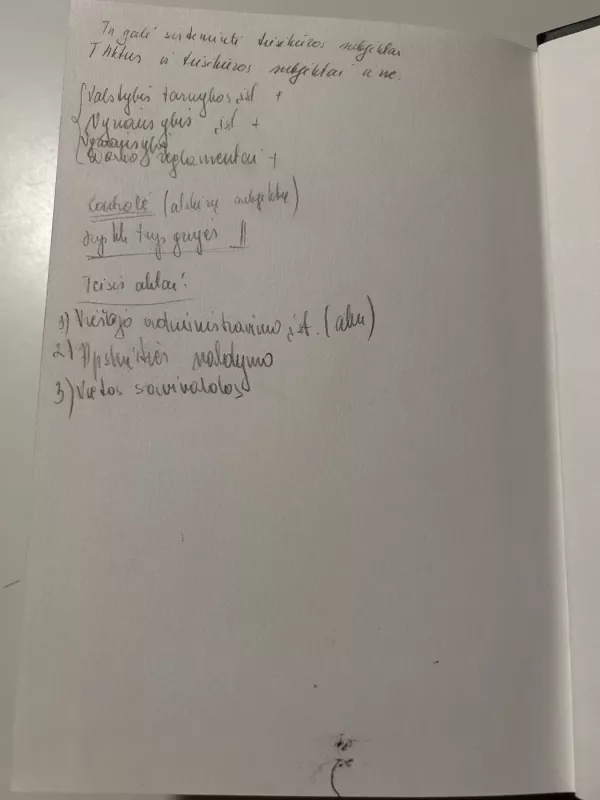 gali susteminti teisėkūros subjektai
TAktus teisėkūros subjektai ir ne.
Valstybės tarnybos įst +
Vyriausybės įst +
Vyriausybės
Darbo reglamentai +
Kontrolė (atskirų subjektų)
trys grupės !!
Teisės aktai:
1) Viešojo administravimo įst. (abu)
2) Apskrities valdymo
3) Vietos savivaldos